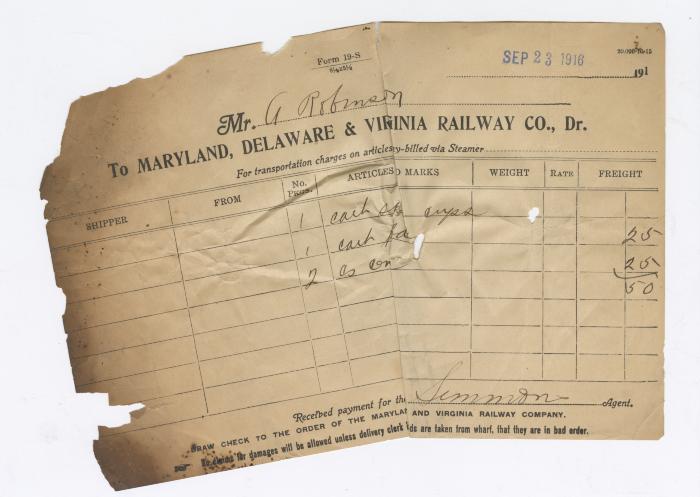 Form 19-S
SEP 23 1916
191
Mr. A Robinson
To MARYLAND, DELAWARE & VIRGINIA RAILWAY CO., Dr.
For transportation charges on articles y-billed via Steamer
SHIPPER FROM No. PKGS. ARTICLES D MARKS WEIGHT RATE FREIGHT
1 cups
1 25
2 cs 25
50
Received payment for the Simmon Agent.
DRAW CHECK TO THE ORDER OF THE MARYLAN AND VIRGINIA RAILWAY COMPANY.
No claims for damages will be allowed unless delivery clerk ds are taken from wharf, that they are in bad order.